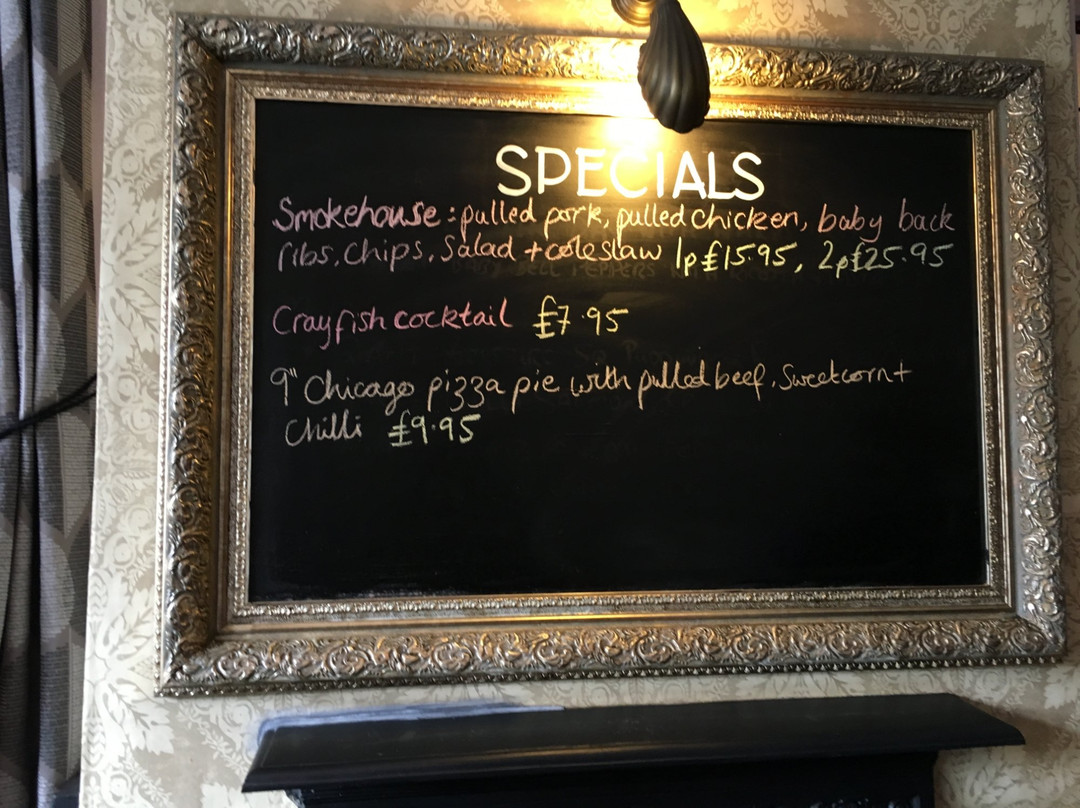 SPECIALS
Smokehouse: pulled pork, pulled chicken, baby back
ribs, chips, Salad + coleslaw 1p£15.95, 2p£25.95
Crayfish cocktail £7.95
9" Chicago pizza pie with pulled beef, Sweetcorn +
Chilli £9.95